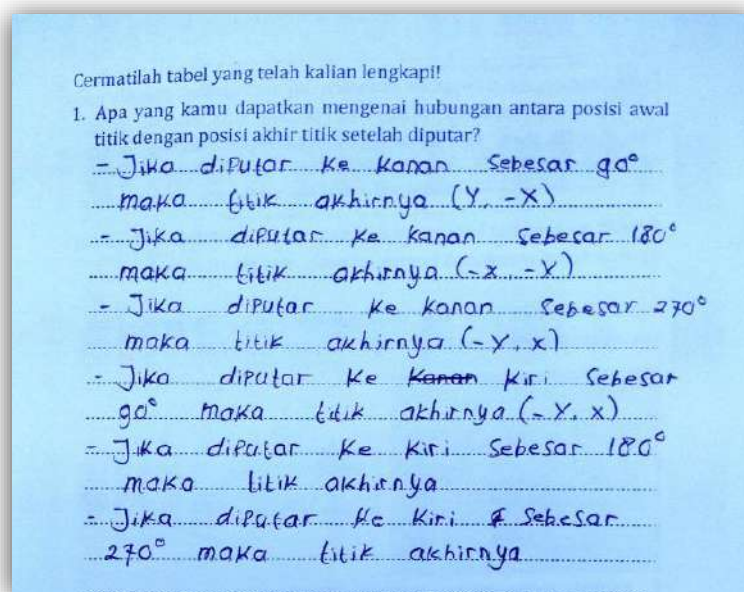 Cermatilah tabel yang telah kalian lengkapi!
1. Apa yang kamu dapatkan mengenai hubungan antara posisi awal
titik dengan posisi akhir titik setelah diputar?
- Jika diputar ke kanan sebesar 90°
maka titik akhirnya (Y, -X)
- Jika diputar ke kanan sebesar 180°
maka titik akhirnya (-x, -Y)
- Jika diputar ke kanan sebesar 270°
maka titik akhirnya (-Y, x)
- Jika diputar ke Kanan Kiri sebesar
90° maka titik akhirnya (-Y, x)
- Jika diputar ke kiri sebesar 180°
maka titik akhirnya
- Jika diputar ke kiri sebesar
270° maka titik akhirnya